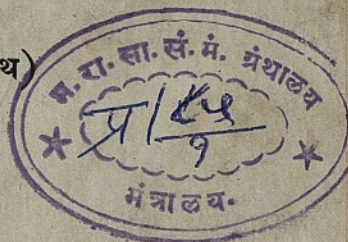 थ)
म. रा. सा. सं. मं. ग्रंथालय
प्र/८५
१
मंत्रालय.